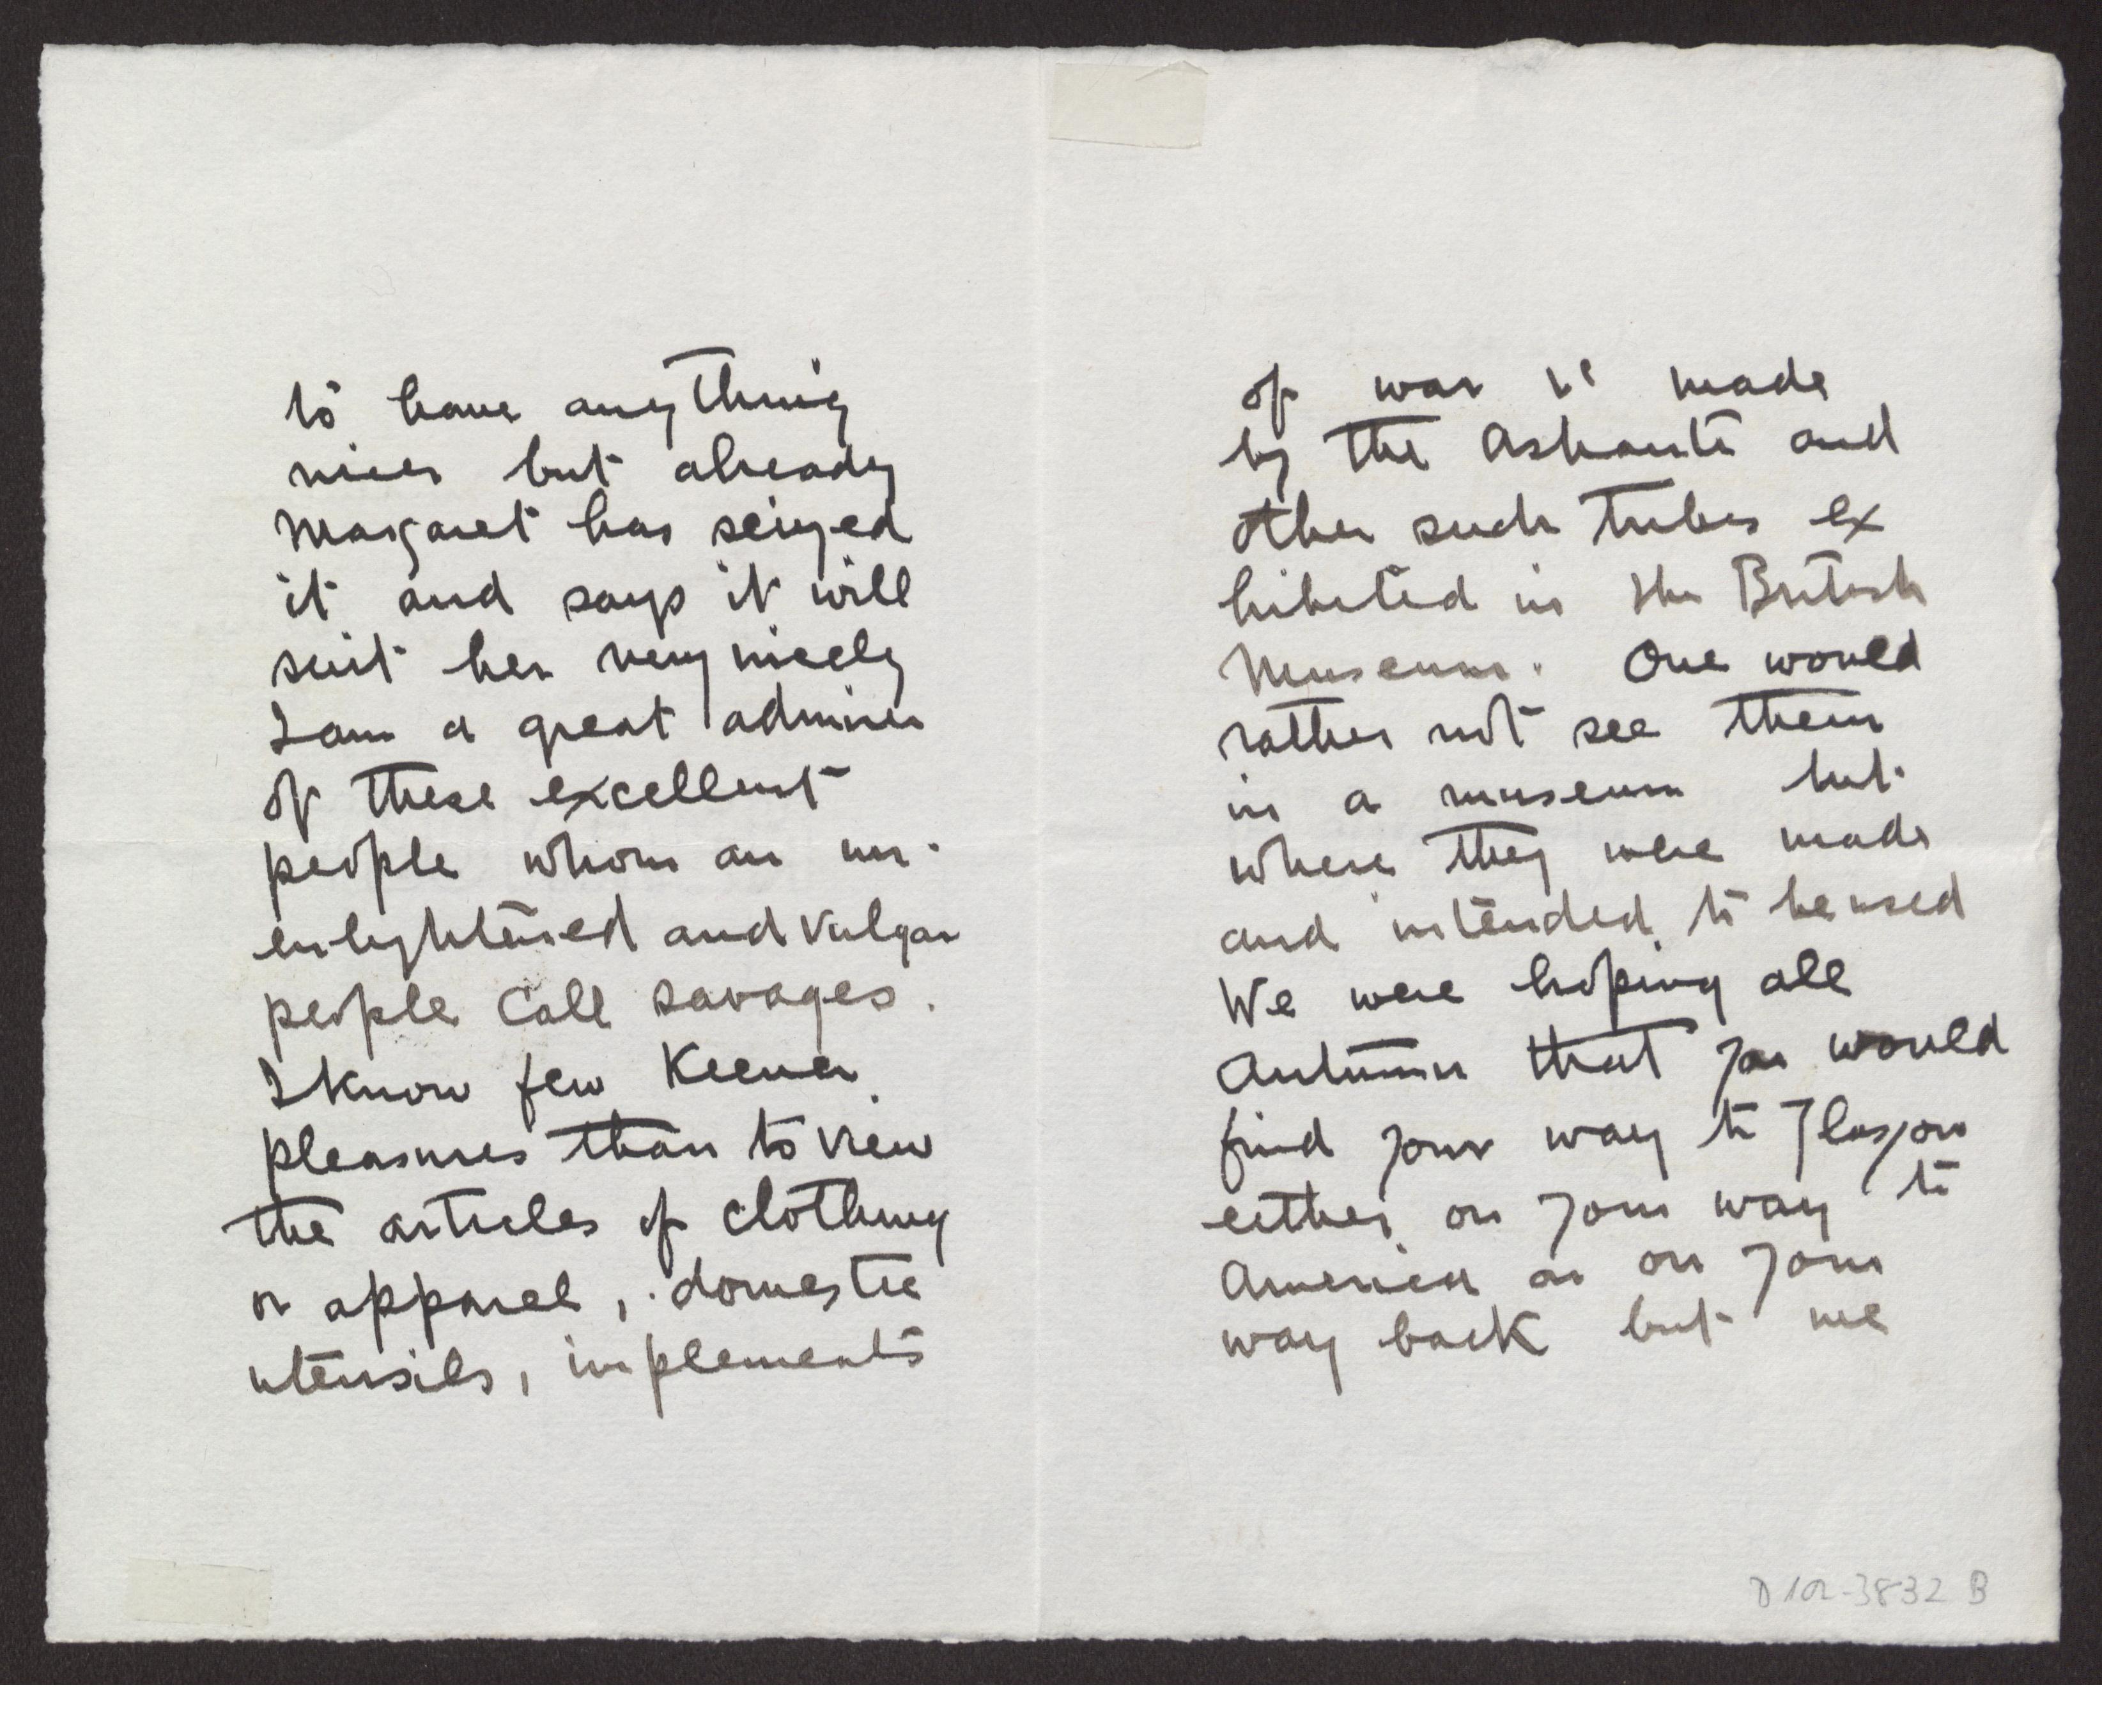 to have anything
nicer but already
Margaret has seized
it and says it will
suit her very nicely
I am a great admirer
of these excellent
people whom an un-
enlightened and vulgar
people call savages.
I know few keener
pleasures than to view
the articles of clothing
or apparel, domestic
utensils, implements
of war &c made
by the Ashanti and
other such tribes ex
hibited in the British
Museum. One would
rather not see them
in a museum but
where they were made
and intended to be used
We were hoping all
Autumn that you would
find your way to Glasgow
either on your way to
America or on your
way back but we
D 102-3832 B